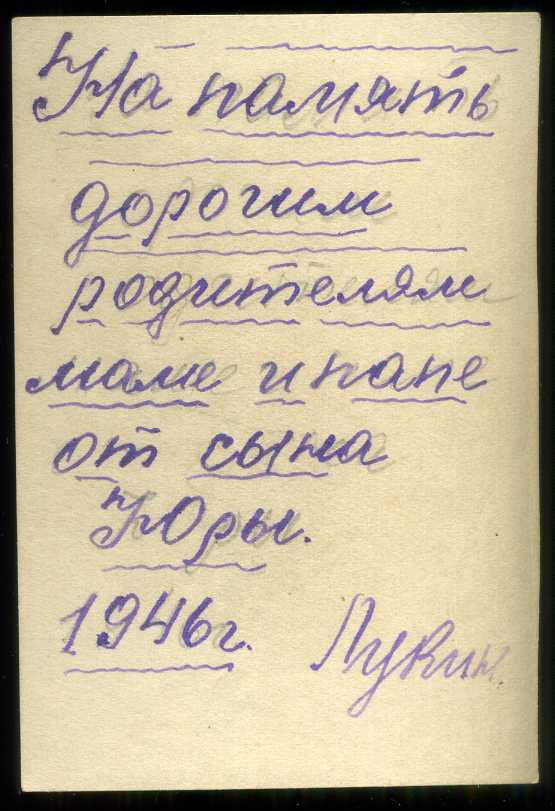 На память
дорогим
родителям
маме и папе
от сына
Юры.
1946г. Лукин